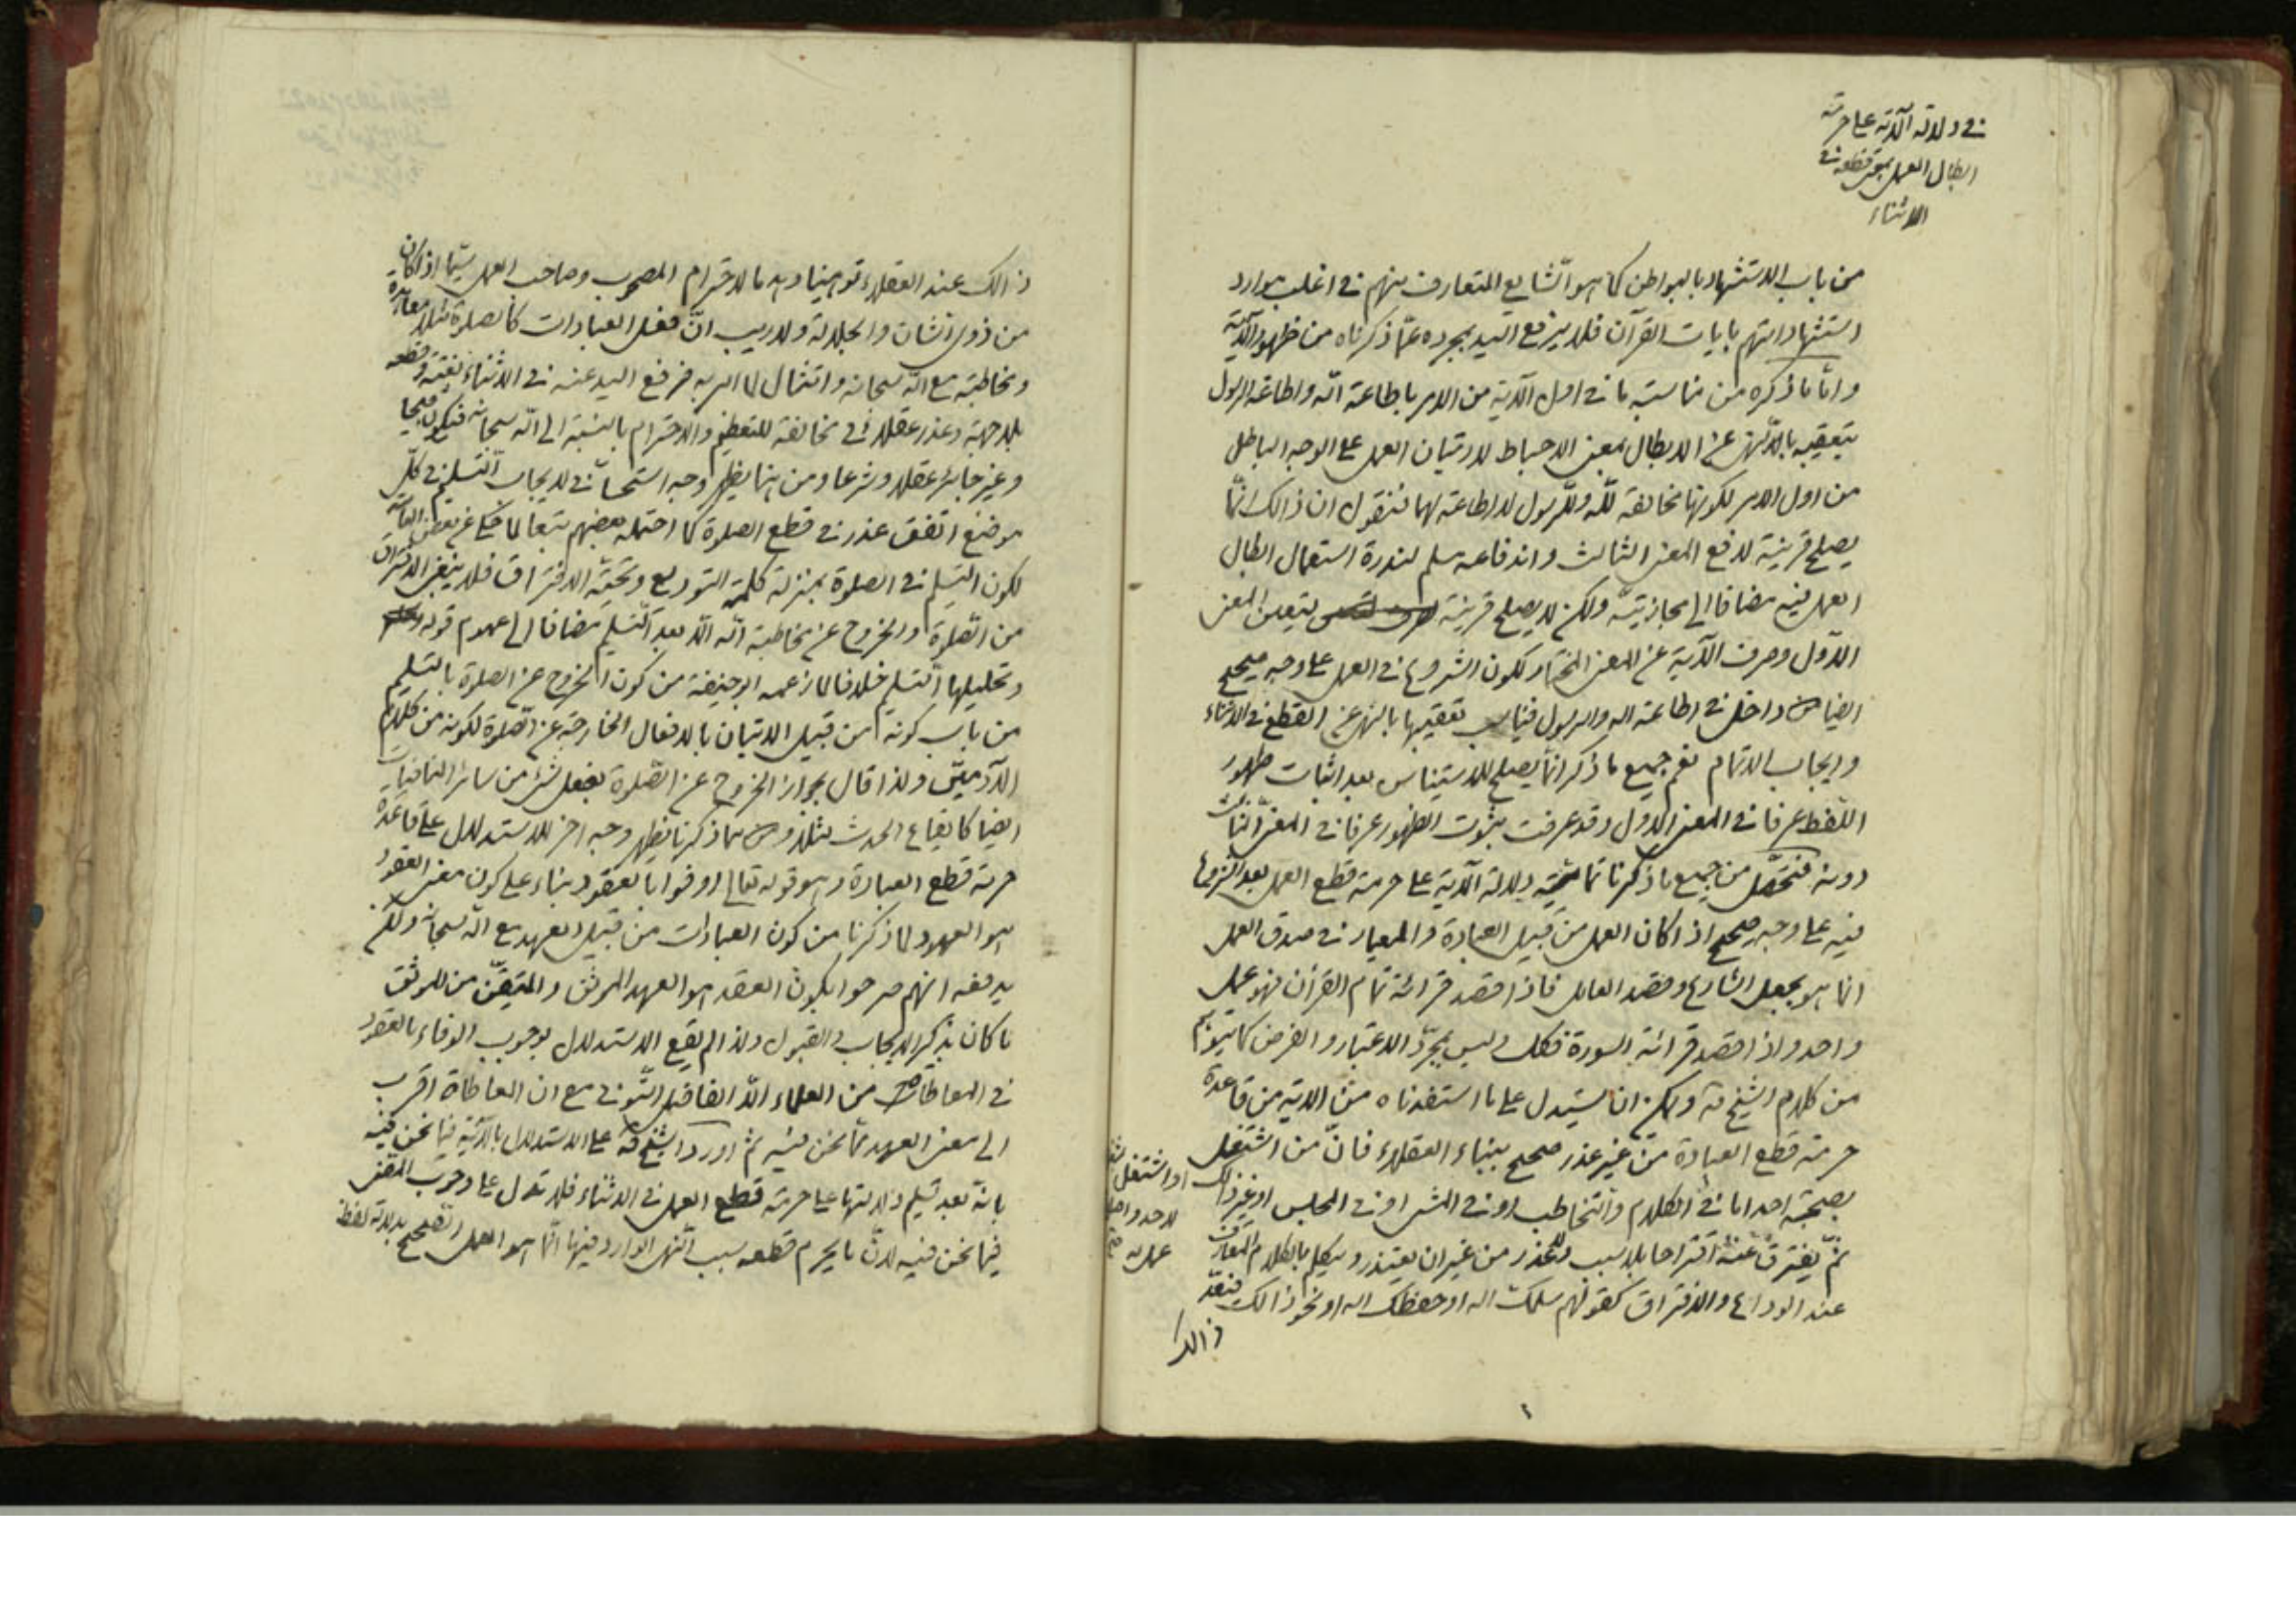 في دلالة الآية على حرمة
ابطال العمل بمعنى قطعه في
الاثناء
من باب الاستشهاد بالبواطن كما هو الشايع المتعارف منهم في اغلب موارد
استشهاداتهم بايات القرآن فلا يرفع اليد بمجرده عمّا ذكرناه من ظهور الآية
وامّا ما ذكره من مناسبة ما في اول الآية من الامر باطاعة الله واطاعة الرسول
بتعقيبه بالنهى عن الابطال بمعنى الاحباط لا اتيان العمل على الوجه الباطل
من اول الامر لكونها مخالفة لله وللرسول لا اطاعة لهما فنقول ان ذالك انمّا
يصلح قرينة لدفع المعنى الثالث واندفاعه سلم لندرة استعمال ابطال
العمل فيه مضافا الى مجازيته ولكن لا يصلح قرينة لتعين المعنى
الاوّل وصرف الآية عن المعنى المختار لكون الشروع في العمل على وجه صحيح
ايضا داخل في اطاعة الله والرسول فيناسب تعقيبها بالنهى عن القطع في الاثناء
وايجاب الاتمام نعم جميع ما ذكر انمّا يصلح للاستيناس بعد اثبات ظهور
اللّفظ عرفا في المعنى الاول وقد عرفت ثبوت الظهور عرفا في المعنى الثاني
دونه فتحصّل من جميع ما ذكرنا تماميّة دلالة الآية على حرمة قطع العمل بعد الشروع
فيه على وجه صحيح اذا كان العمل من قبيل العبادة والمعيار في صدق العمل
انما هو بجعل الشارع وقصد العامل فاذا قصد قرائة تمام القرآن فهو عمل
واحد واذا قصد قرائة السورة فكك وليس بمجرّد الاعتبار والفرض كما يتوهم
من كلام الشيخ قه ولك ان تستدل على ما استفدناه من الاية من قاعدة
حرمة قطع العبادة من غير عذر صحيح ببناء العقلاء فانّ من اشتغل
بصحبة احد اما في الكلام والتخاطب او في المشى او في المجلس او غير ذالك
او اشتغل
لاحد واصل
عمل له
ثمّ يفترق عنه اقتراحا بلا سبب ولا عذر من غير ان يعتذر ويتكلم بالكلام المتعارف
عند الوداع والافتراق كقولهم سلمك الله او حفظك الله او نحو ذالك فيعدّ
ذالك
ذالك عند العقلاء توهينا وهدما لاحترام المصحوب وصاحب العمل سيّما اذا كان
من ذوى الشان والجلالة ولا ريب انّ فعل العبادات كالصلوة مثلا معاهدة
ومخاطبة مع الله سبحانه وامتثال لما امر به فرفع اليد عنه في الاثناء بغتة وقطعه
بلا جهة وعذر عقلائى مخالفة للتعظيم والاحترام بالنسبة الى الله سبحانه فيكون قبيحا
وغير جائز عقلا وشرعا ومن هنا يظهر وجه استحسانى لايجاب التسليم في كلّ
موضع اتفق عذر في قطع الصلوة كما احتمله بعضهم تبعا لما حكى عن بعض العامة
لكون التسليم في الصلوة بمنزلة كلمة التوديع وتحيّة الافتراق فلا ينبغى الافتراق
من الصّلوة والخروج عن مخاطبة الله الّا بعد التسليم مضافا الى عموم قوله
وتحليلها التسليم خلافا لما زعمه ابو حنيفة من كون الخروج عن الصلوة بالتسليم
من باب كونه من قبيل الاتيان بالافعال الخارجة عن الصّلوة لكونه من كلام
الآدميّين ولذا قال بجواز الخروج عن الصّلوة بفعل شئ من سائر المنافيات
ايضا كايقاع الحدث مثلا ومما ذكرنا يظهر وجه اخر للاستدلال على قاعدة
حرمة قطع العبادة وهو قوله تعالى اوفوا بالعقود بناء على كون معنى العقود
هو العهود لما ذكرنا من كون العبادات من قبيل العهد مع الله سبحانه ولكن
يدفعه انهم صرحوا بكون العقد هو العهد الموثق والمتيقّن من الموثق
ما كان بذكر الايجاب والقبول ولذا لم يقع الاستدلال بوجوب الوفاء بالعقود
في المعاطاة من العلماء الّا الفاضل التونى مع ان المعاطاة اقرب
الى معنى العهد ممّا نحن فيه ثم اورد الشيخ قه على الاستدلال بالآية فيما نحن فيه
بانه بعد تسليم دلالتها على حرمة قطع العمل في الاثناء فلا تدل على وجوب المضى
فيما نحن فيه لانّ ما يحرم قطعه بسبب النّهى الوارد فيها انّما هو العمل الصّحيح بدلالة لفظ